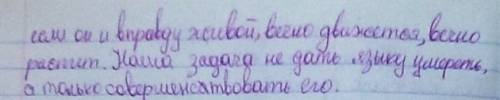 если он и вправду живой, вечно движется, вечно
растит. Наша задача не дать языку умереть,
а только совершенствовать его.